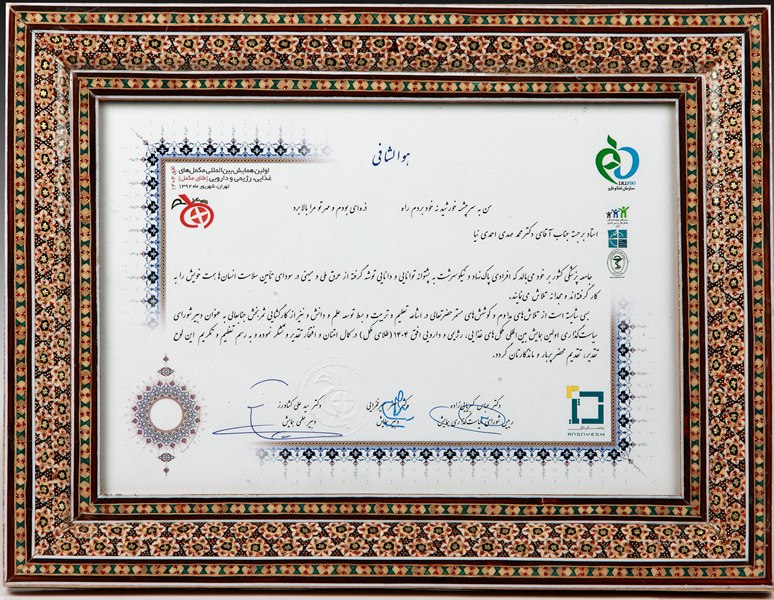 هو الشافی
اولین همایش بین‌المللی مکمل‌های
غذایی، رژیمی و دارویی (طلای مکمل)
تهران، شهریور ماه ۱۳۹۲
سازمان غذا و دارو
من به سرچشمه خورشید نه خود بردم راه ذره‌ای بودم و مهر تو مرا بالا برد
استاد برجسته جناب آقای دکتر محمد مهدی احمدی نیا
جامعه پزشکی کشور بر خود می‌بالد که افرادی پاک‌نهاد و نیکوسرشت به پشتوانه توانایی و دانایی توشه گرفته از عرق ملی و میهنی در سودای تامین سلامت انسان‌ها همت خویش را به
کار گرفته‌اند و مجدانه تلاش می‌نمایند.
بسی شایسته است از تلاش‌های مداوم و کوشش‌های مستمر حضرتعالی در اشاعه تعلیم و تربیت و بسط توسعه علم و دانش و نیز از کارگشایی ثمربخش جنابعالی به عنوان دبیر شورای
سیاست‌گذاری اولین همایش بین المللی مکمل‌های غذایی، رژیمی و دارویی افق ۱۴۰۴ (طلای مکمل) در کمال امتنان و افتخار تقدیر و تشکر نموده و به رسم تعلیم و تکریم این لوح
تقدیر، تقدیم محضر پربار و ماندگارتان گردد.
دکتر سید علی کشاورز
رییس شورای سیاست‌گذاری همایش دبیر همایش دبیر علمی همایش
RASAYESH